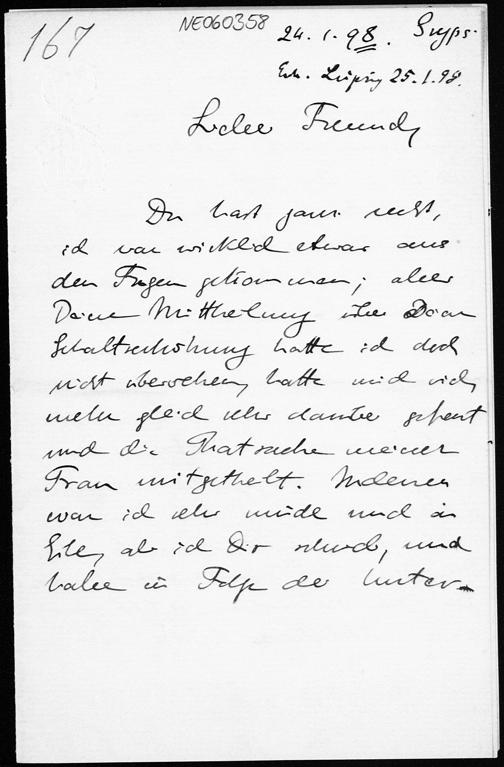 167
NE060358
24. 1. 98. Gryps.
Erh. Leipzig 25.1.98.
Lieber Freund,
Du hast ganz recht,
ich war wirklich etwas aus
den Fugen gekommen; aber
Deine Mittheilung über Deine
Gehaltserhöhung hatte ich doch
nicht übersehen, hatte mich viel
mehr gleich sehr darüber gefreut
und die Thatsache meiner
Frau mitgetheilt. Indessen
war ich sehr müde und in
Eile, als ich Dir schrieb, und
habe in Folge der Unter-